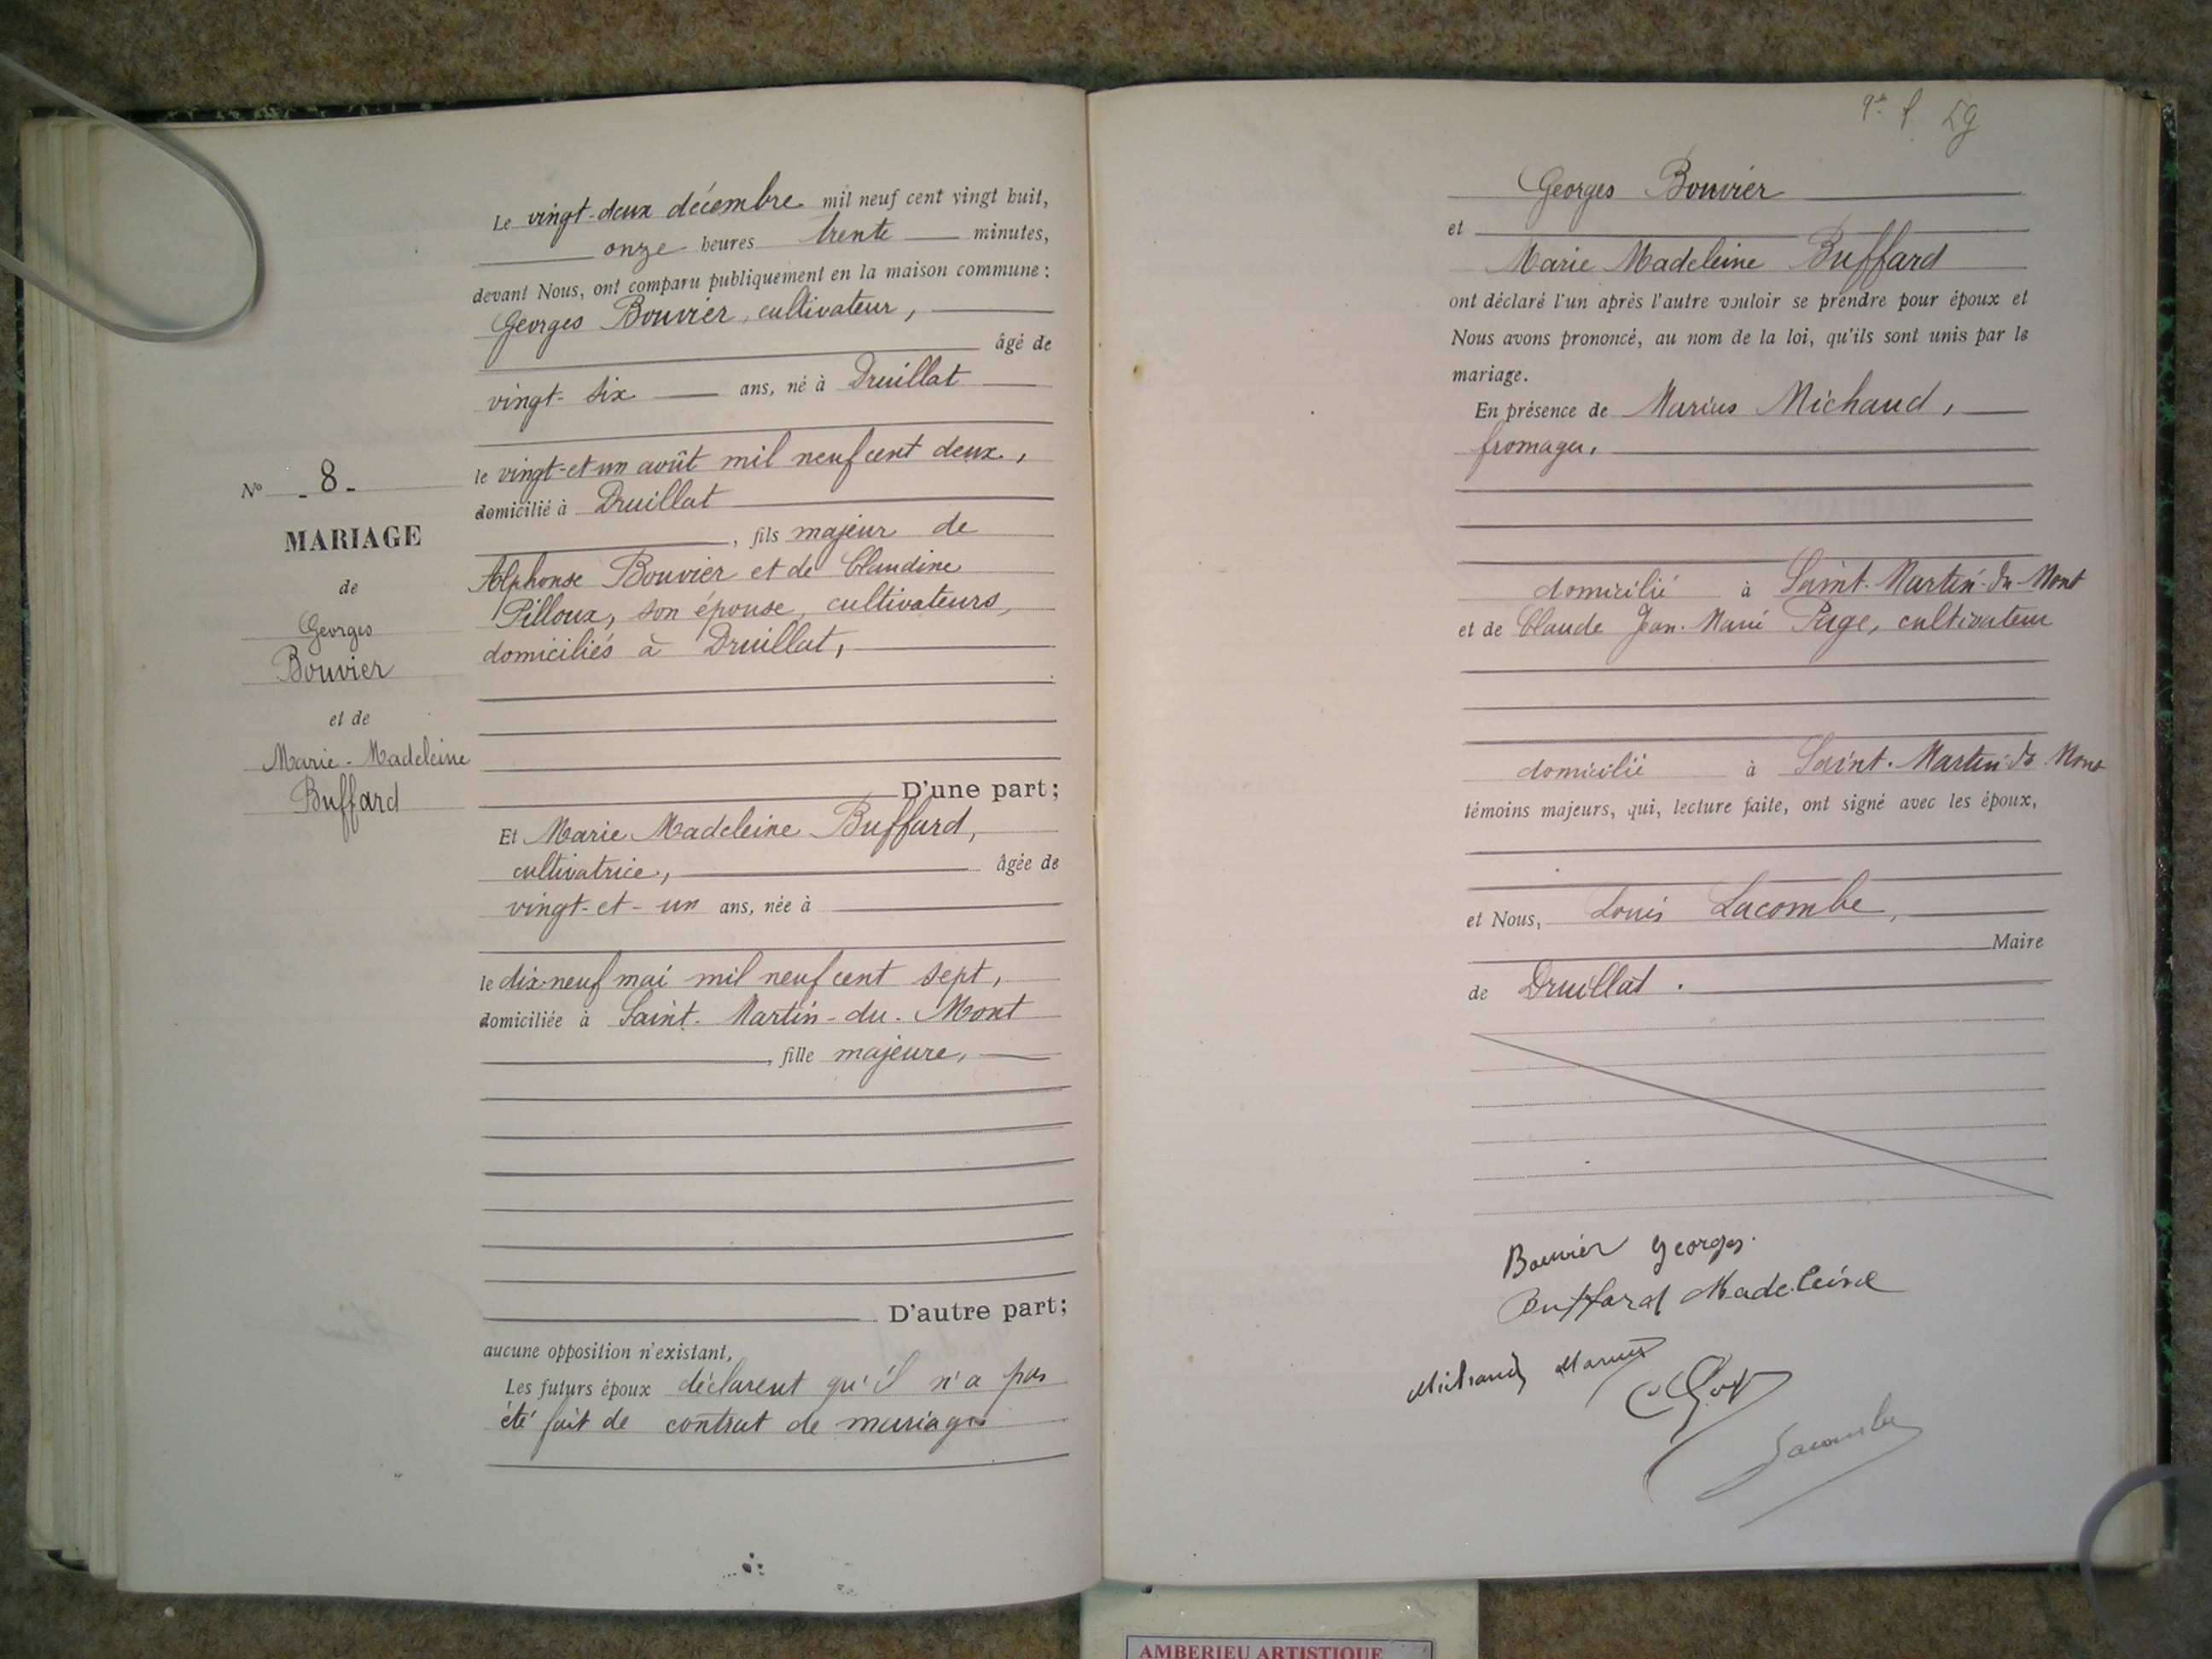 Le vingt-deux décembre mil neuf cent vingt huit,
onze heures trente minutes,
devant Nous, ont comparu publiquement en la maison commune :
Georges Bouvier, cultivateur,
âgé de
vingt-six ans, né à Druillat
le vingt-et-un août mil neuf cent deux,
domicilié à Druillat
, fils majeur de
Alphonse Bouvier et de Claudine
Pilloux, son épouse, cultivateurs,
domiciliés à Druillat,
D'une part;
Nº - 8 -
MARIAGE
de
Georges
Bouvier
et de
Marie-Madeleine
Buffard
Et Marie Madeleine Buffard,
cultivatrice, âgée de
vingt-et-un ans, née à
le dix-neuf mai mil neuf cent sept,
domiciliée à Saint-Martin-du-Mont
, fille majeure,
D'autre part;
aucune opposition n'existant,
Les futurs époux déclarent qu'il n'a pas
été fait de contrat de mariage
Georges Bouvier
et
Marie Madeleine Buffard
ont déclaré l'un après l'autre vouloir se prendre pour époux et
Nous avons prononcé, au nom de la loi, qu'ils sont unis par le
mariage.
En présence de Marius Michaud,
fromager,
domicilié à Saint-Martin-du-Mont
et de Claude Jean-Marie Page, cultivateur
domicilié à Saint-Martin-du Mont
témoins majeurs, qui, lecture faite, ont signé avec les époux,
et Nous, Louis Lacombe,
Maire
de Druillat.
Bouvier Georges.
Buffard Madeleine
Michaud Marius
Lacombe
AMBERIEU ARTISTIQUE